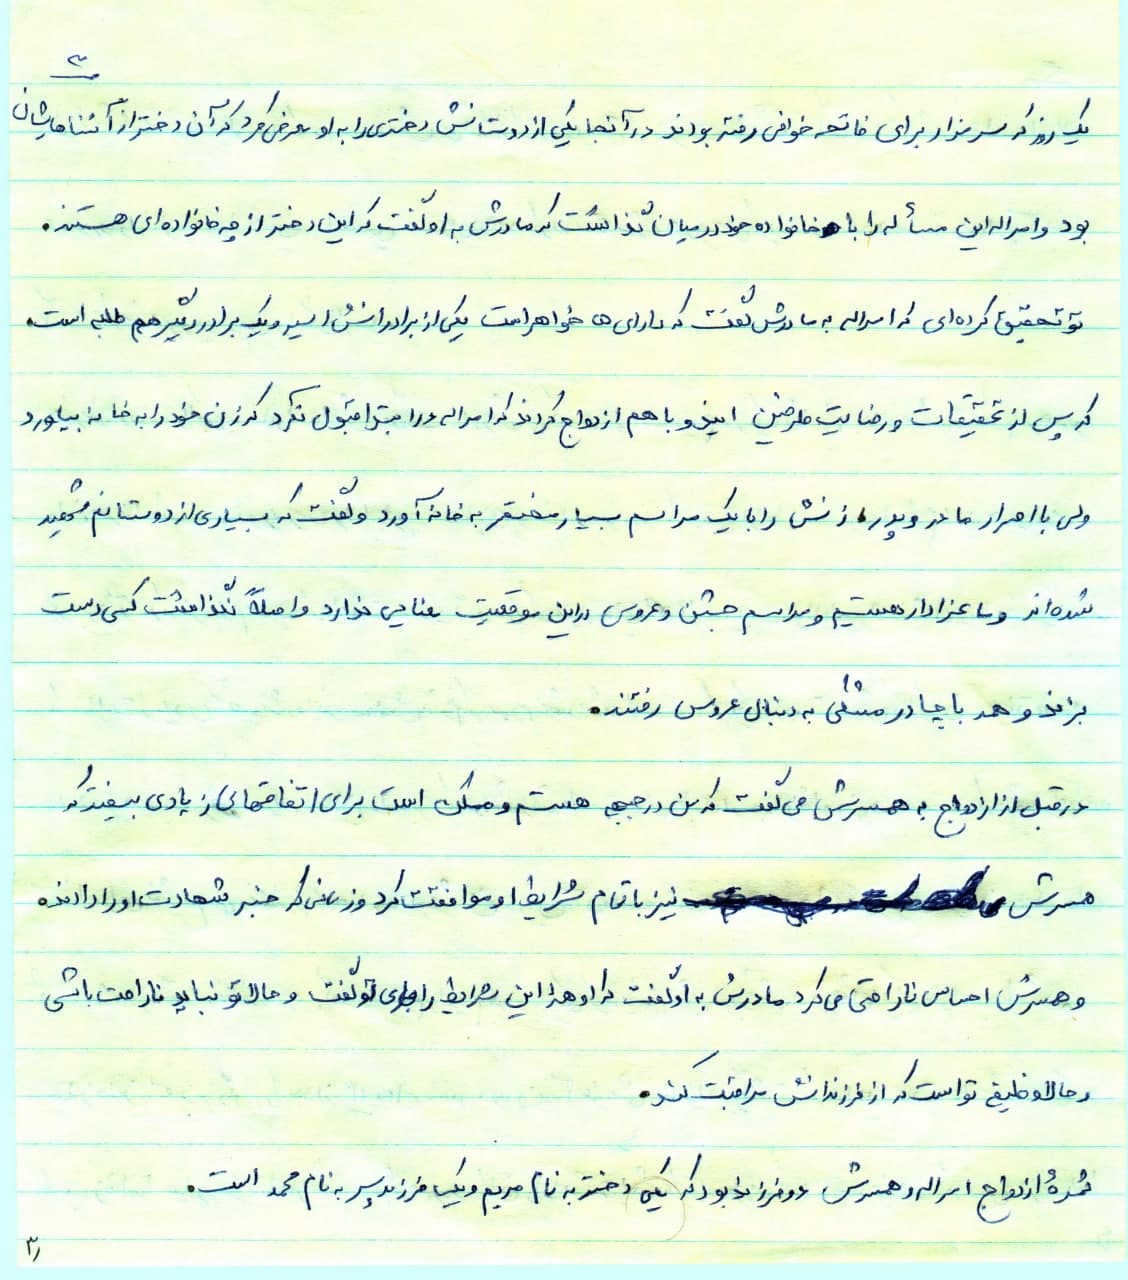 ۳
یک روز که سر مزار برای فاتحه خوانی رفته بودند در آنجا یکی از دوستانش دختری را به او معرفی کرد که آن دختر از آشناهایشان
بود و امراله این مسأله را با خانواده خود در میان گذاشت که مادرش به او گفت که این دختر از چه خانواده ای هستند.
تو تحقیق کرده ای که امراله به مادرش گفت که دارای ها خواهر است یکی از برادرانش اسیر و یک برادر دیگیر هم طلبه است.
که پس از تحقیقات و رضایت طرفین ایندو با هم ازدواج کردند که امراله در ابتدا قبول نکرد که زن خود را به خانه بیاورد
ولی با اصرار مادر و پدر، زنش را با یک مراسم بسیار مختصر به خانه آورد و گفت که بسیاری از دوستانم شهید
شده اند و ما عزادار هستیم و مراسم جشن و عروسی در این موقعیت معنایی ندارد و اصلاً نگذاشت کسی دست
بزند و همه با چادر مشکی به دنبال عروس رفتند.
در قبل از ازدواج به همسرش می گفت که من در جبهه هستم و ممکن است برای اتفاقهای زیادی بیفتد که
همسرش نیز با تمام شرایط او موافقت کرد و زمانی که خبر شهادت او را دادند
و همسرش احساس ناراحتی می کرد مادرش به او گفت که او همه این شرایط را برای تو گفت و حالا تو نباید ناراحت باشی
و حالا وظیفه تو است که از فرزندانش مراقبت کنی.
ثمرهٔ ازدواج امراله و همسرش دو فرزند بود که یکی دختر به نام مریم و یک فرزند پسر به نام محمد است.
۳